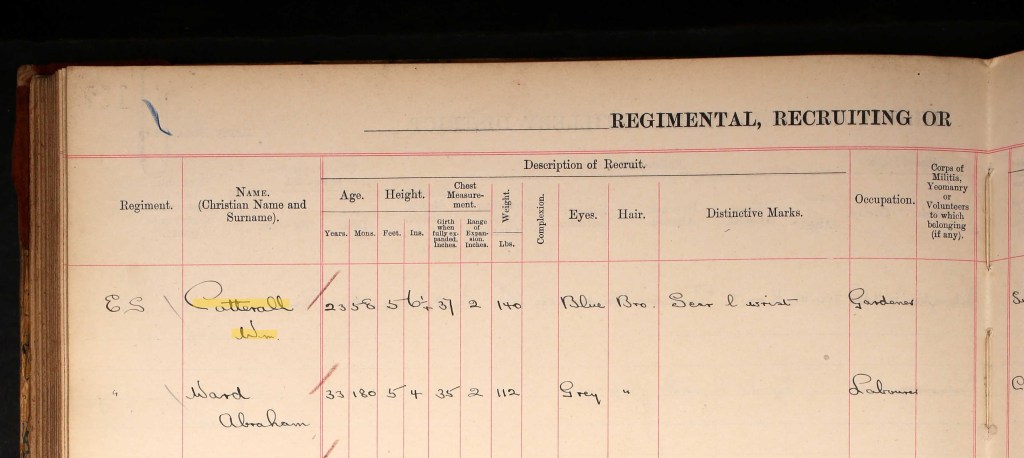 REGIMENTAL, RECRUITING OR
Description of Recruit.
Regiment.
NAME.
(Christian Name and
Surname).
Age.
Height.
Chest
Measure-
ment.
Weight.
Complexion.
Eyes.
Hair.
Distinctive Marks.
Occupation.
Corps of
Militia,
Yeomanry
or
Volunteers
to which
belonging
(if any).
Years.
Mons.
Feet.
Ins.
Girth
when
fully ex-
panded,
Inches.
Range
of
Expan-
sion.
Inches.
Lbs.
ES Catterall 23 58 5 6¼ 37 2 140 Blue Bro. Scar l wrist Gardener
Wm.
" Ward 33 180 5 4 35 2 112 Grey " Labourer
Abraham